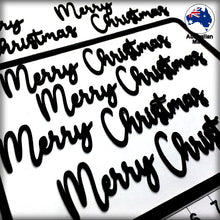 Merry
Christmas
Merry
Christmas
Australian
Made
Merry Christmas
Merry Christmas
Merry Christmas
Merry Christ